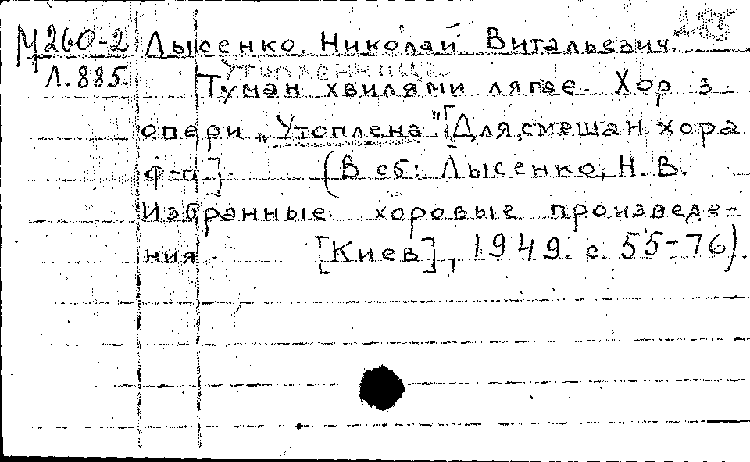 М260-2 Лысенко, Николай Витальевич.
Л.885 Утопленница
Туман хвилями лягае. Хор з
опери „Утоплена" [Для смешан. хора
ф-п]. (В сб: Лысенко, Н. В.
Избранные хоровые произведе-
ния. [Киев], 1949. с. 55-76).